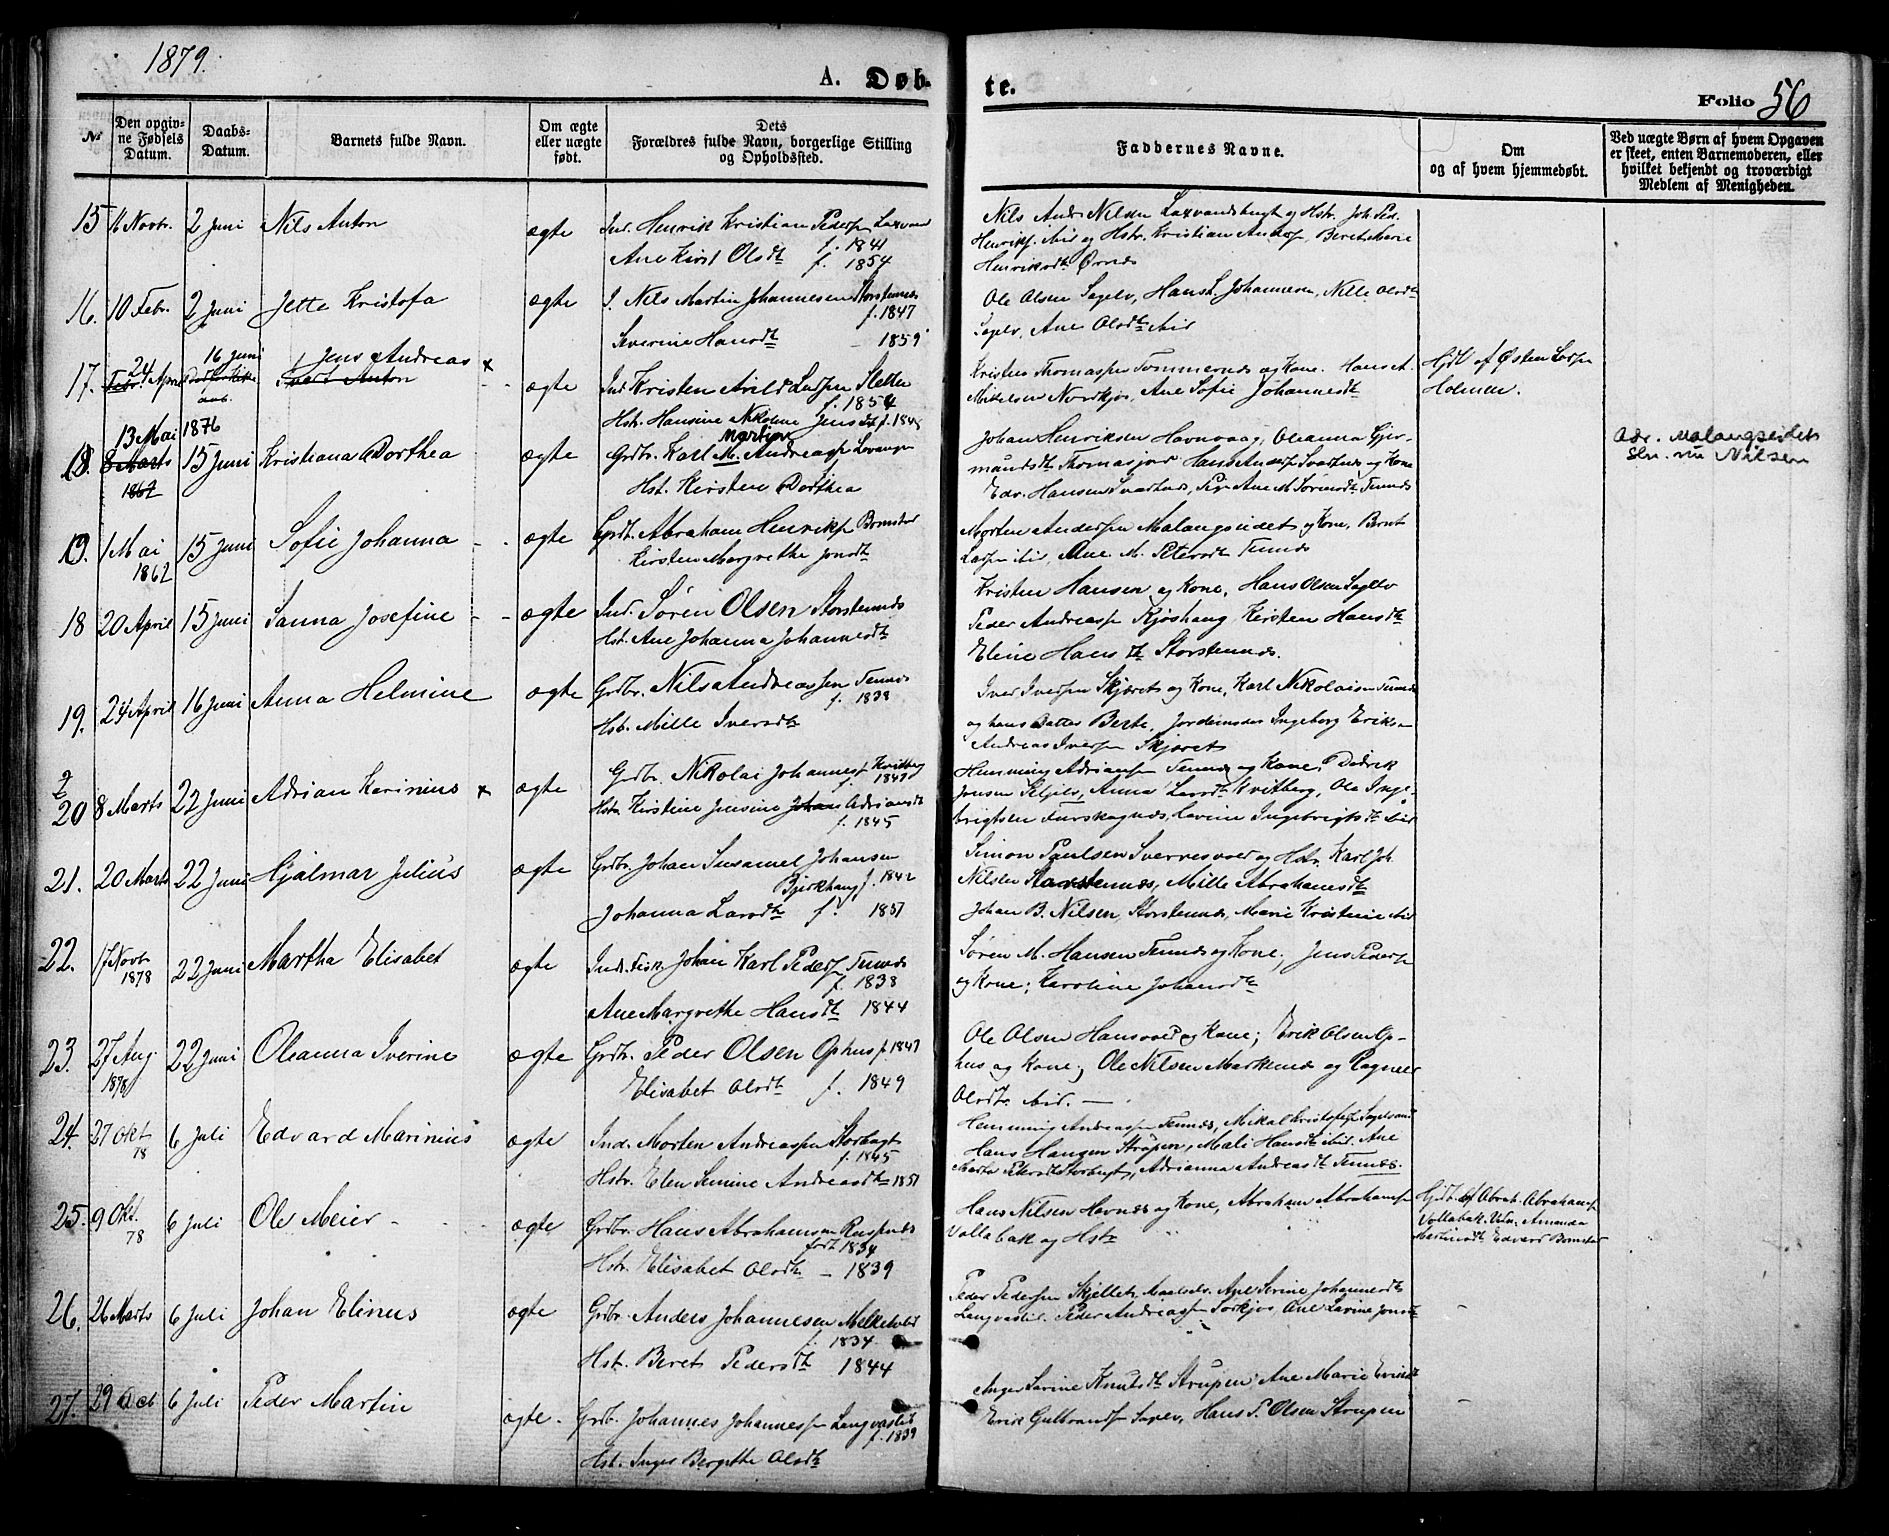 1879.
A. Døb-
te.
Folio 56
No
Den opgiv-
ne Fødsels
Datum.
Daabs-
Datum.
Barnets fulde Navn.
Om ægte
eller uægte
født.
Dets
Forældres fulde Navn, borgerlige Stilling
og Opholdssted.
Faddernes Navne.
Om
og af hvem hjemmedøbt.
Ved uægte Børn af hvem Opgaven
er skeet, enten Barnemoderen, eller
hvilket bekjendt og troværdigt
Medlem af Menigheden.
15 16 Novbr. 2 Juni Nils Anton ægte Ind. Henrik Kristian Peders
f. 1841
Ane Kirst Olsdt f. 1854
Nils Andr Nilsen og Hstr. Joh. Ped.
Henriks ibid og Hstr. Kristian Anders, Beret Marie
Henriksdt Ørnes
16. 10 Febr. 2 Juni Jette Kristofa ægte I. Nils Martin Johannesen Storstennes
f. 1847
Severine Hansdt - 1859
Ole Olsen Sagelv, Hans L. Johannesen, Nille Olsdt
Sagelv, Ane Olsdt ibid
17. 24 April 16 Juni Jens Andreas x
Anton
ægte Ind Kristen Arild Lars Sletten
f. 1854
Hst. Hansine Nikoline Jensdt f. 1848
Kristen Thomas Tømmernes og Kone. Hans A.
Mikelsen Nordkjos, Ane Sofie Johannesdt
Hjdb af Østen Lars
Holmen.
18. 13 Mai 1876
8 Marts
1862
15 Juni Kristiana Dorthea ægte Grdbr. Karl M. Andreas Levangen
Martin
Hst. Kirsten Dorthea
Johan Henriksen Havnvaag, Oleanna Gjer-
mundsdt Thomasjord Hans Anders Svartnes og Kone
Edv. Hansen Svartnes, Pige Ane M Sørensdt Tennes
Adr. Malangseidet
Nilsen
19. 1 Mai
1862
15 Juni Sofie Johanna - - ægte Grdb. Abraham Henriks Bomstad
Kirsten Margrethe Jonsdt
Morten Andersen Malangseidet og Kone, Bernt
Lars ibid, Ane M. Petersdt Tennes
18 20 April 15 Juni Sanna Josefine - - ægte Ind. Sören Olsen Storstennes
Hst. Ane Johanna Johannesdt
Kristen Hansen og Kone, Hans Olsen Sagelv
Peder Andreas Kjoshaug Kirsten Hansdt
Eline Hansdt Storstennes.
19. 24 April 16 Juni Anna Helmine ægte Grdbr. Nils Andreassen Tennes
f. 1838
Hstr. Mille Iversdt
Iver Iversen Skjæret og Kone, Karl Nikolaisen Tennes
og hans Datter Berte, Jordemoder Ingeborg Eriksen
Andreas Iversen Skjæret
20 8 Marts 22 Juni Adrian Karinius x ægte Grdbr. Nikolai Johannes Kvitberg
f. 1849
Hstr. Kirstine Jensine Johans Adriansdt
f. 1845
Hemming Adriansen Tennes og Kone, Didrik
Jensen Selelv, Anna Larsdt Kvitberg, Ole Inge-
brigtsen Furskognes, Lavine Ingebrigtsdt ibid
21. 20 Marts 22 Juni Hjalmar Julius ægte Grdbr. Johan Susamel Johansen
Bjerkhaug f. 1842
Johanna Larsdt f. 1851
Simon Paulsen og Hstr. Karl Joh.
Nilsen Storstennes, Mille Abrahamsdt
Johan B. Nilsen, Storstennes, Marie Kristine ibid
22. 17 Novbr
1878
22 Juni Martha Elisabet ægte Ind. Fisk. Johan Karl Peders Tennes
f. 1838
Ane Margrethe Hansdt 1844
Søren M. Hansen Tennes og Kone; Jens Peders
og Kone; Karoline Johansdt
23. 27 Aug.
1878
22 Juni Oleanna Iverine ægte Grdbr. Peder Olsen Ophus f. 1847
Elisabet Olsdt f. 1849
Ole Olsen Hansvold og Kone; Erik Olsen Op-
hus og Kone; Ole Nilsen Markenes og Ragnel
Olsdt. ibid. —
24. 27 Okt
78
6 Juli Edvard Marinius ægte Ind. Morten Andreas Storbugt
f. 1845
Hstr. Elen Semine Andreasdt 1851
Hemming Andreasen Tennes, Mikal Kristofers Sagelvand
Hans Hangen Strupen, Mali Hansdt ibid. Ane
Marta Petersdt Storbugt, Adrianna Andreasdt Tennes.
25. 9 Okt.
78
6 Juli Ole Meier - ægte Grdbr. Hans Abrahamsen Ruspenes
født 1834
Hstr. Elisabet Olsdt - 1839
Hans Nilsen Havnes og Kone, Abraham Abrahams
Vollabak og Hstr.
Hjdb. af Abrah. Abrahams
Vollabak. Vidn. Amanda
Martinsdt Edvard Bomstad
26. 26 Marts 6 Juli Johan Elinus ægte Grdbr. Anders Johannesen Melkelvlid
f. 1834
Hst. Beret Pedersdt 1844
Peder Pedersen Skjellet Maalselv. Ane Serine Johannesdt
Langvaslid. Peder Andreas Sørkjos, Ane Lavine Jensdt
27. 29 Oct 6 Juli Peder Martin ægte. Grdbr. Johannes Johannes Langvaslid
f. 1839
Hst. Inger Bergitte Olsdt
Inger Sarine Knutsdt Strupen; Ane Marie Eriksdt
Erik Gulbrands Sagelv, Hans P. Olsen Strupen